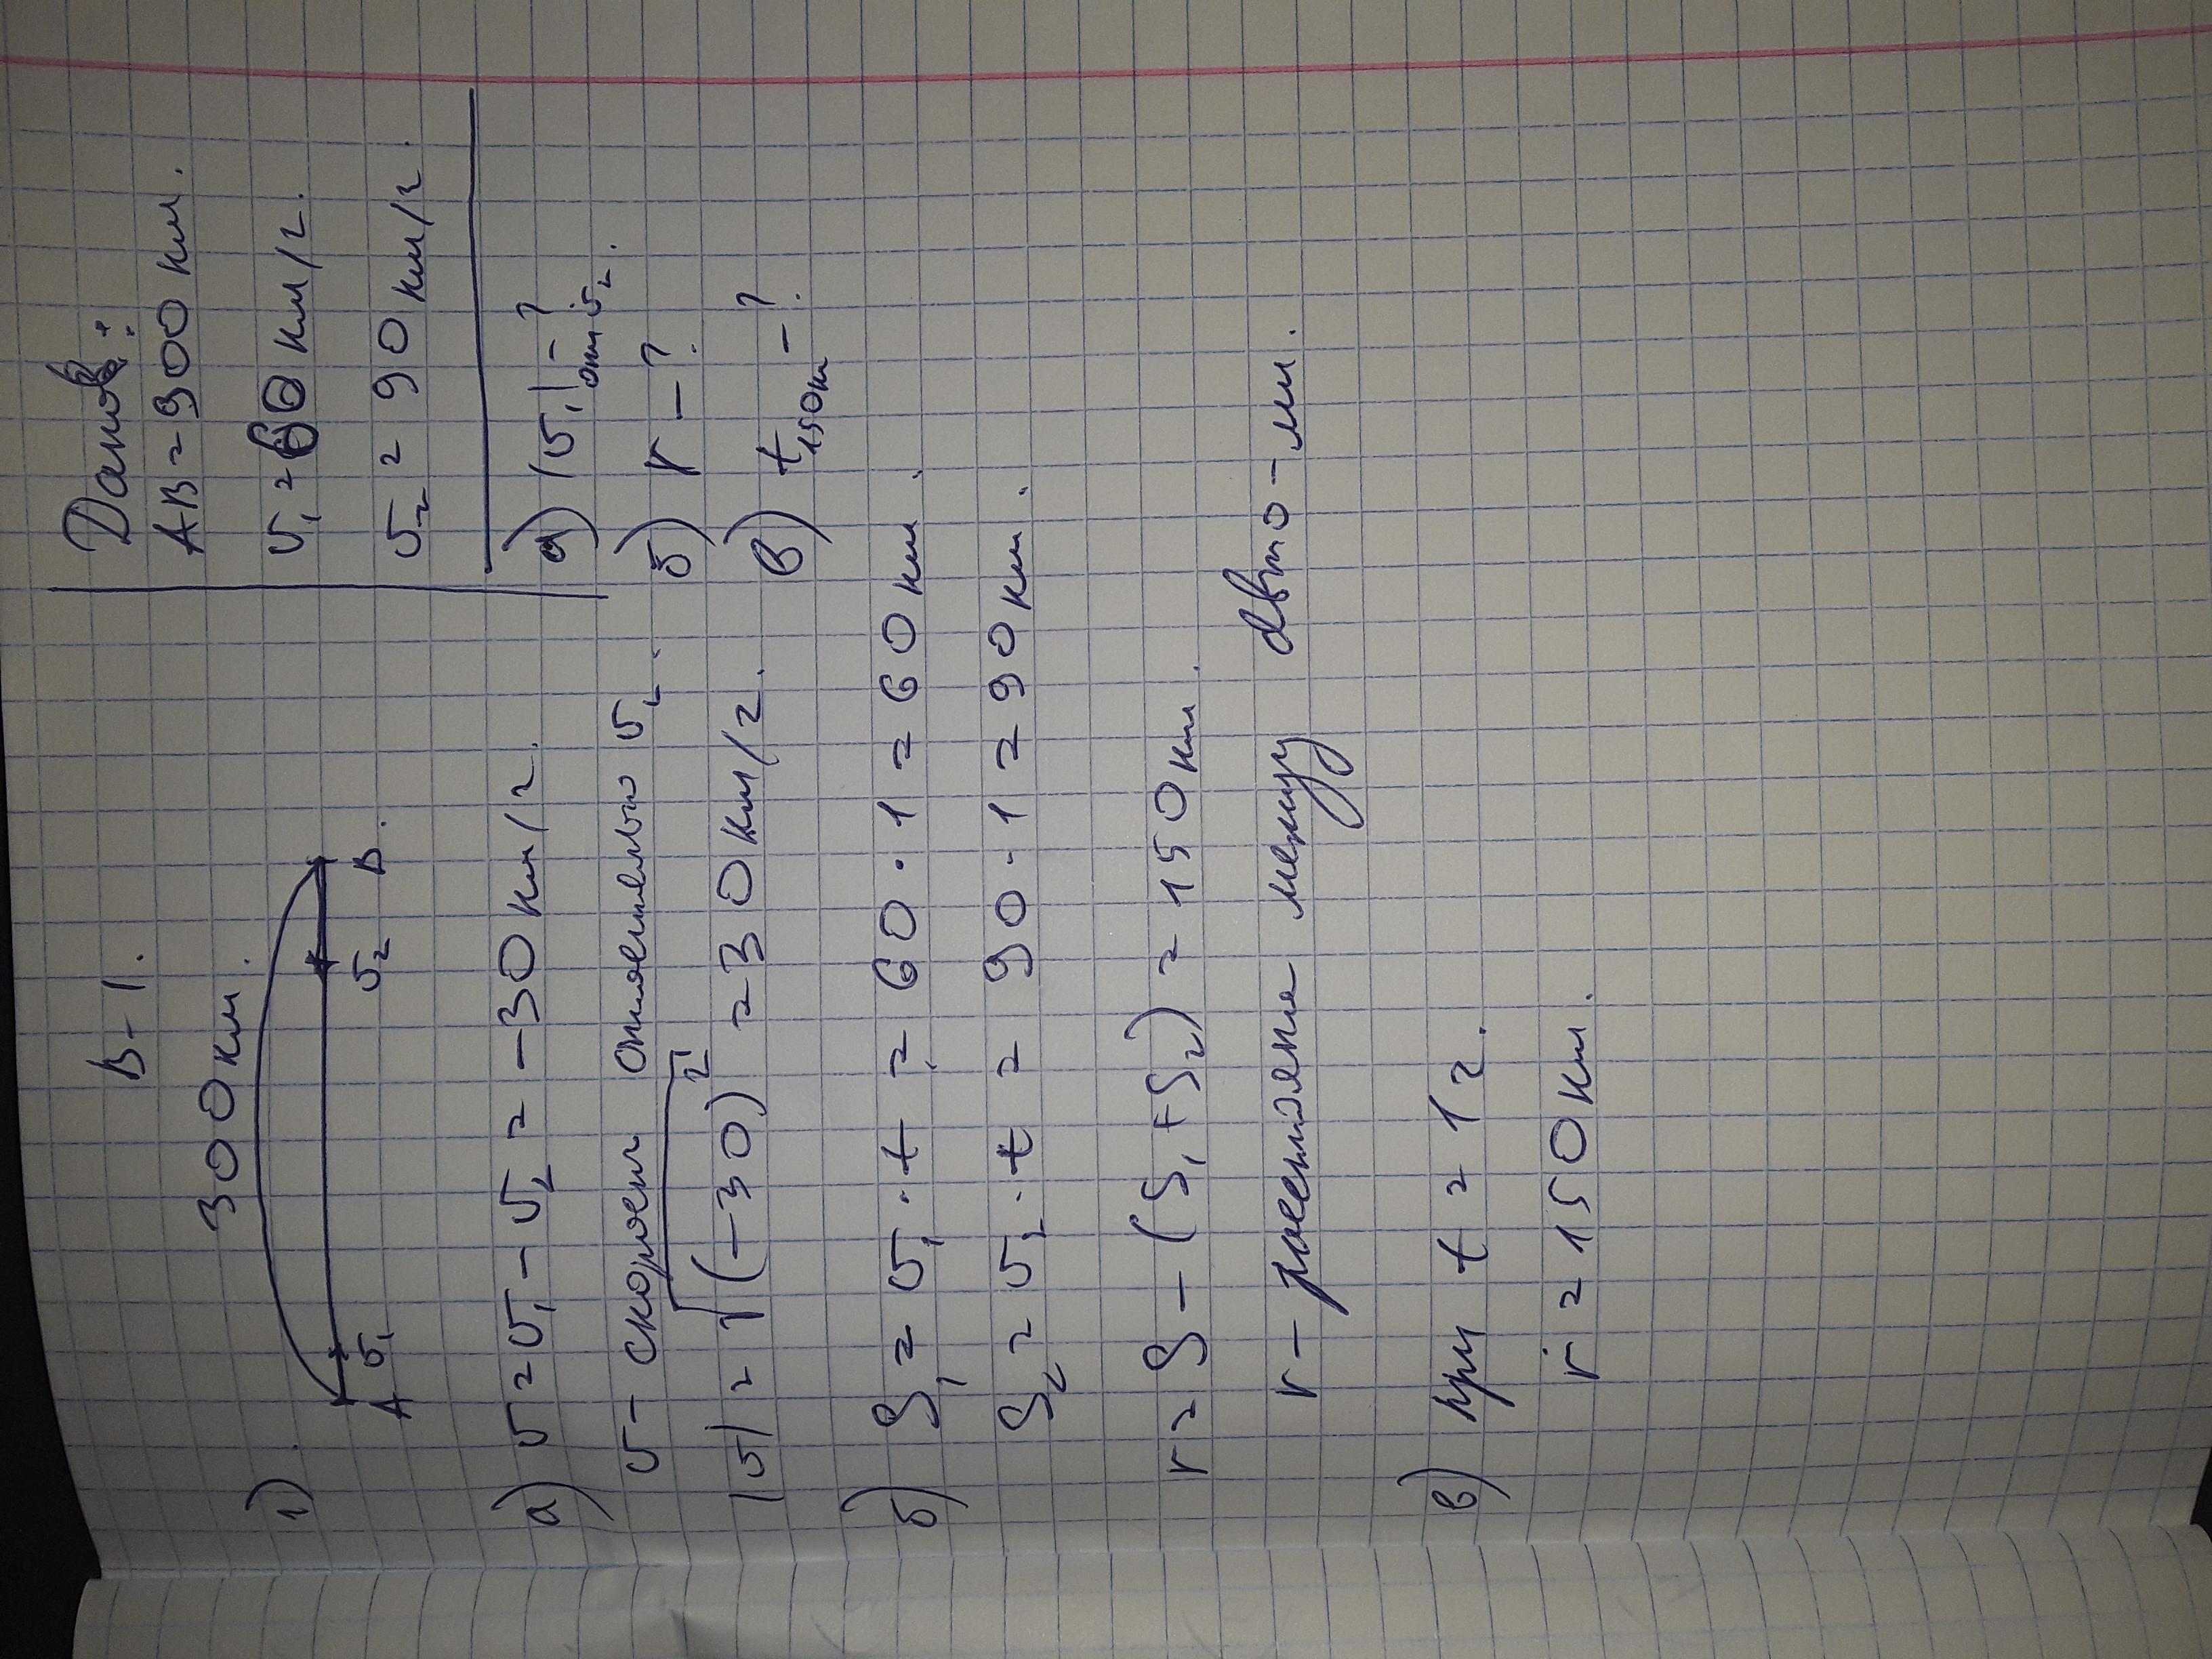 В-1.
Дано:
1).
300км.
А
υ₁
υ₂
В.
АВ = 300 км.
υ₁ = 60 км/г.
υ₂ = 90 км/г.
а) |υ₁| - ?
отн υ₂.
б) r - ?
в) t₁₅₀км - ?
а) υ = υ₁ - υ₂ = -30км/г.
υ - скорость относительно υ₂.
|υ| = √(-30)² = 30км/г.
б) S₁ = υ₁·t = 60·1 = 60км.
S₂ = υ₂·t = 90·1 = 90км.
r = S - (S₁ + S₂) = 150км.
r - расстояние между авто-ми.
в) при t = 1г.
r = 150км.